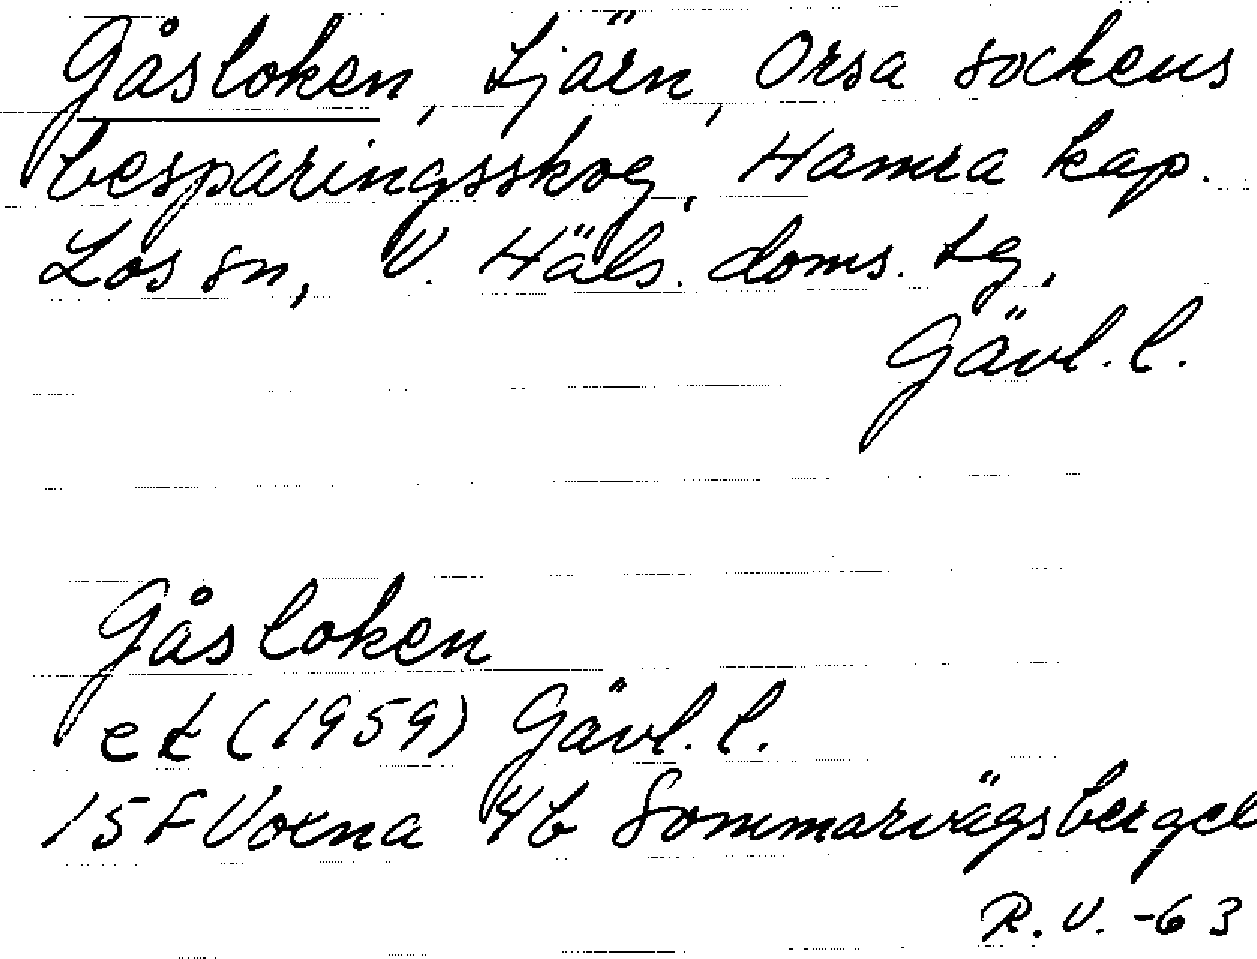 Gåsloken, tjärn, Orsa sockens
besparingsskog, Hamra kap.
Los sn, V. Häls. doms. tg,
Gävl. l.
Gåsloken
ek (1959) Gävl. l.
15 F Voxna 4b Sommarvägsberget
R. V. -63